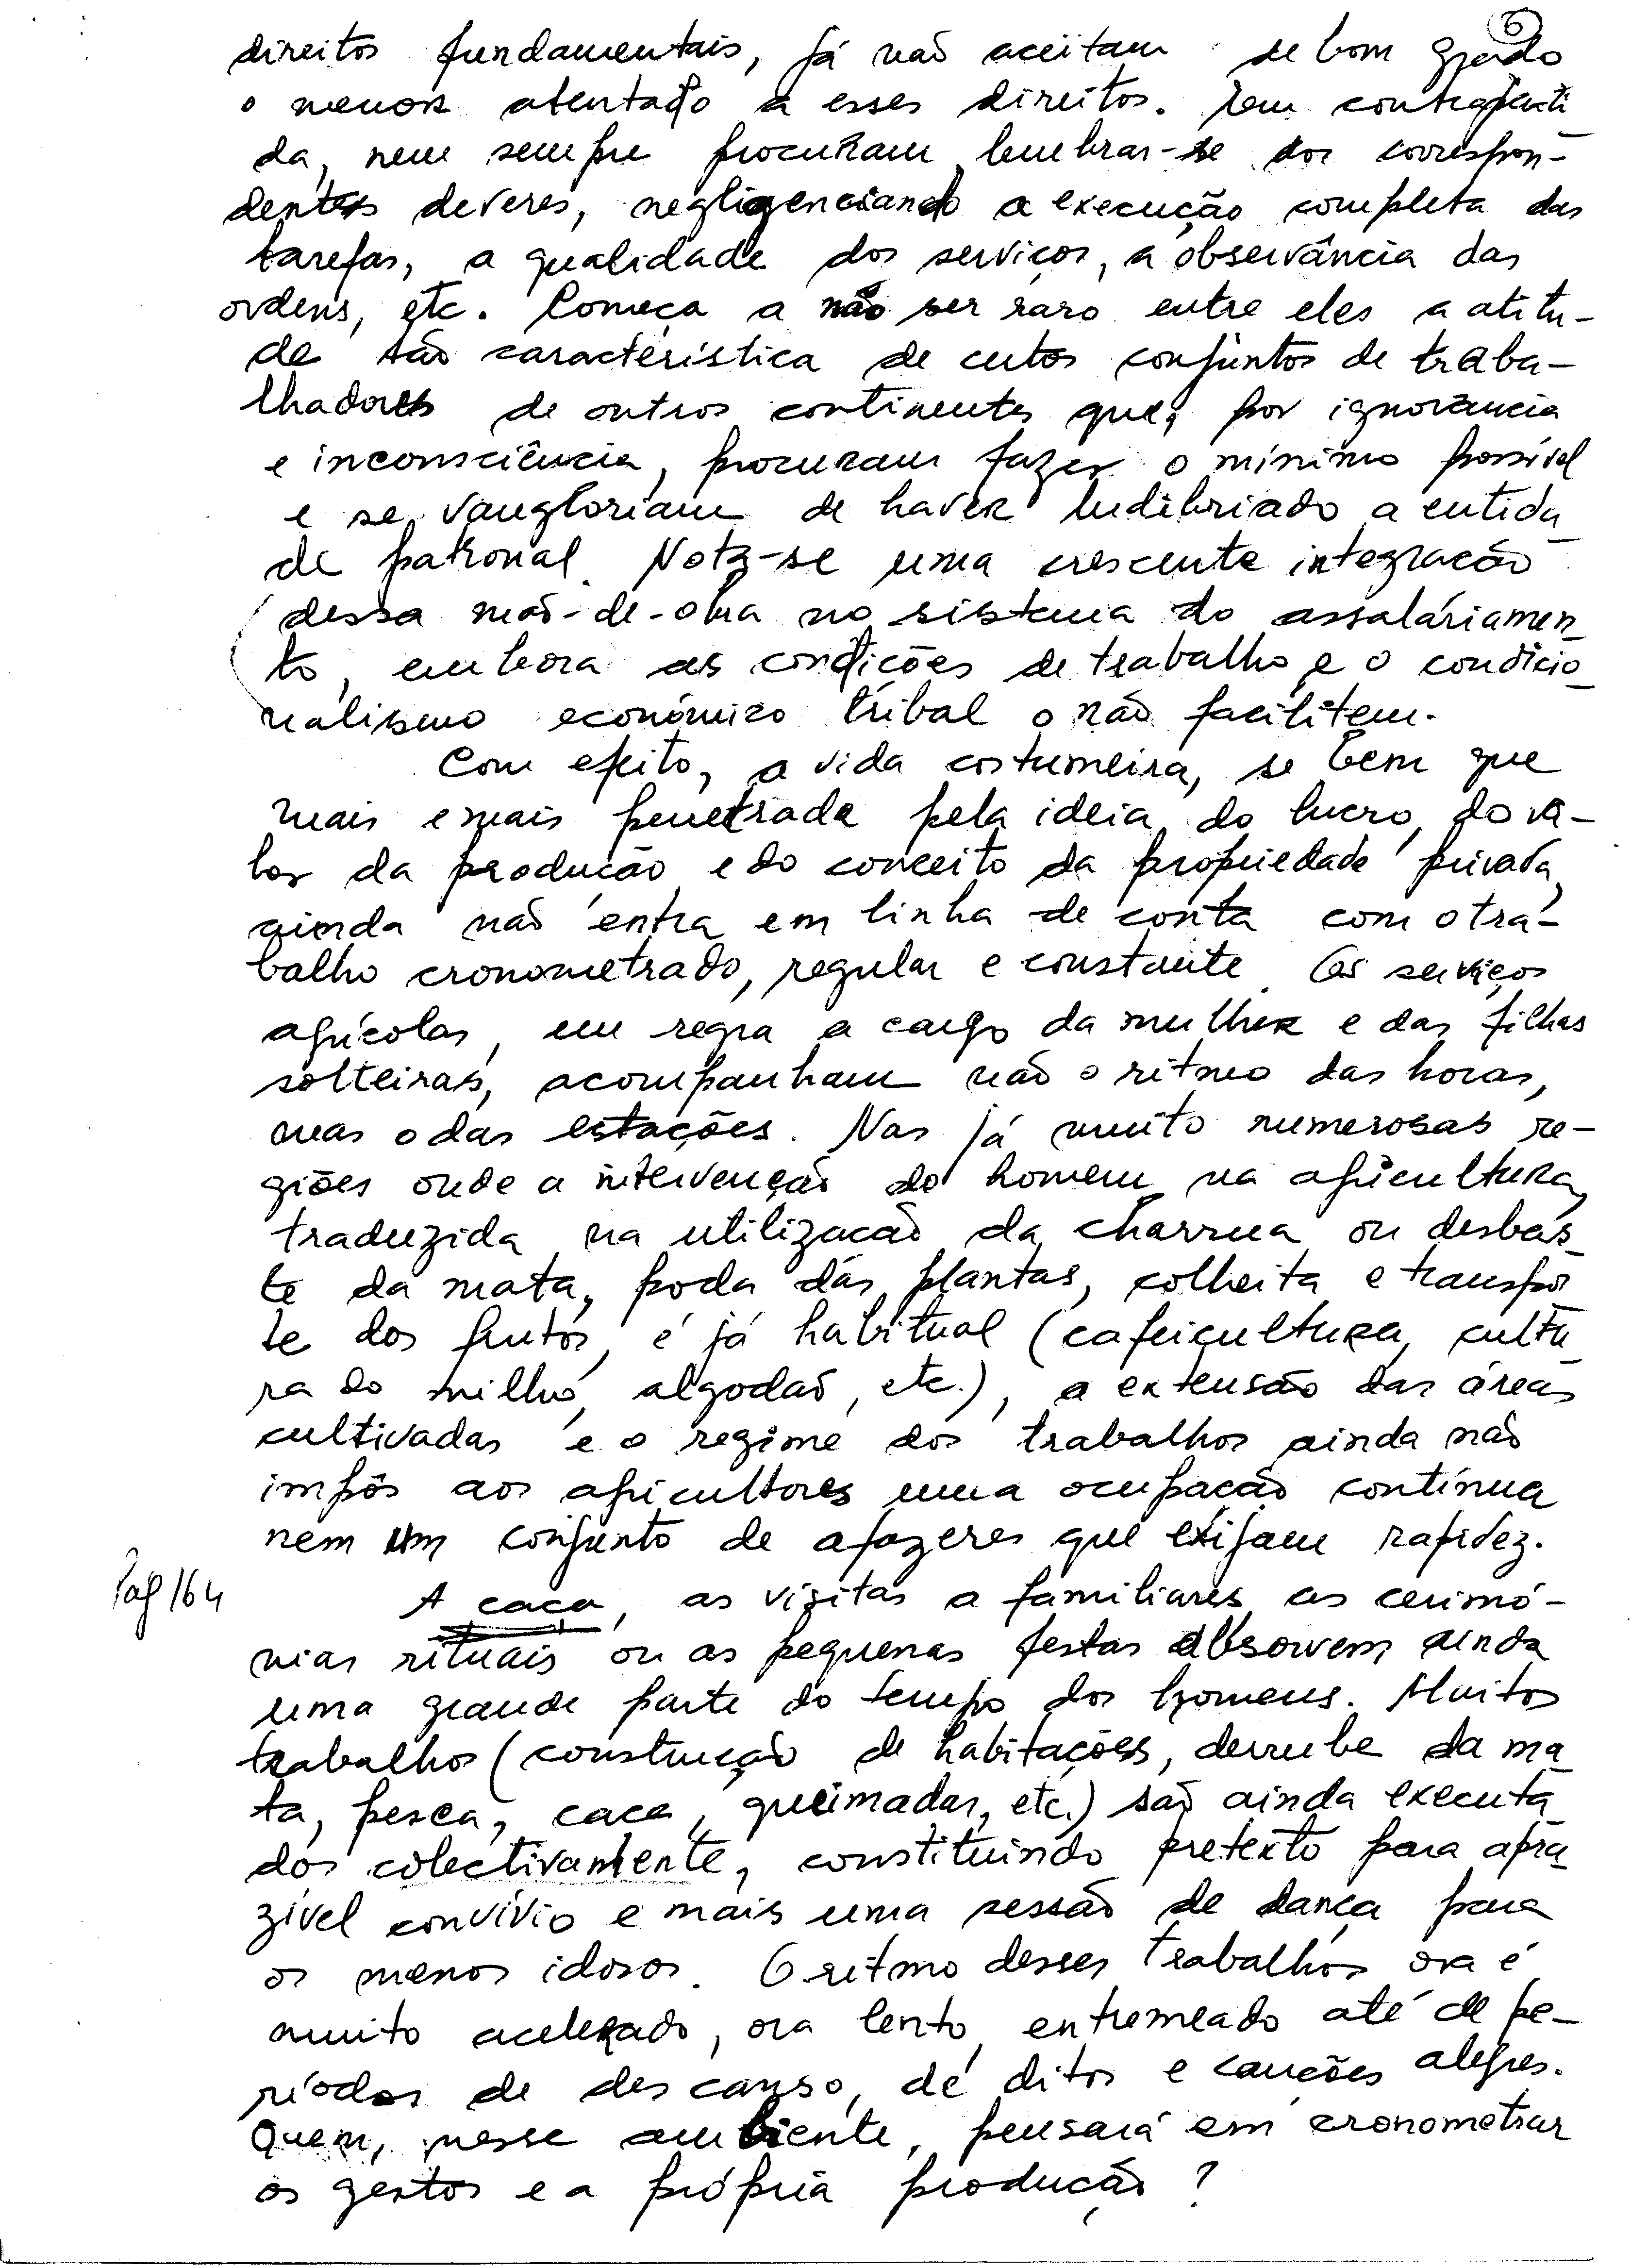 6
direitos fundamentais, já não aceitam de bom grado
o menor atentado a esses direitos. Em contraparti
da, nem sempre procuram lembrar-se dos correspon-
dentes deveres, negligenciando a execução completa das
tarefas, a qualidade dos serviços, a observância das
ordens, etc. Começa a não ser raro entre eles a atitu-
de tão característica de certos conjuntos de traba-
lhadores de outros continentes que, por ignorância
e inconsciência, procuram fazer o mínimo possível
e se vangloriam de haver ludibriado a entida
de patronal. Nota-se uma crescente integração
dessa mão-de-obra no sistema do assalariamen
to, embora as condições de trabalho e o condicio
nalismo económico tribal o não facilitem.
Com efeito, a vida costumeira, se bem que
mais e mais penetrada pela ideia do lucro, do va-
lor da produção e do conceito da propriedade privada,
ainda não entra em linha de conta com o tra-
balho cronometrado, regular e constante. Os serviços
agrícolas, em regra a cargo da mulher e das filhas
solteiras, acompanham não o ritmo das horas,
mas o das estações. Nas já muito numerosas re-
giões onde a intervenção do homem na agricultura,
traduzida na utilização da charrua ou desbas
te da mata, poda das plantas, colheita e transpor
te dos frutos, é já habitual (cafeicultura, cultu
ra do milho, algodão, etc.), a extensão das áreas
cultivadas e o regime dos trabalhos ainda não
impôs aos agricultores uma ocupação contínua
nem um conjunto de afazeres que exijam rapidez.
Pag 164
A caça, as visitas a familiares, as cerimó-
nias rituais ou as pequenas festas absorvem ainda
uma grande parte do tempo dos homens. Muitos
trabalhos (construção de habitações, derrube da ma
ta, pesca, caça, queimadas, etc.) são ainda executa
dos colectivamente, constituindo pretexto para apra
zível convívio e mais uma sessão de dança para
os menos idosos. O ritmo desses trabalhos ora é
muito acelerado, ora lento, entremeado até de pe-
ríodos de descanso, de ditos e canções alegres.
Quem, nesse ambiente, pensará em cronometrar
os gestos e a própria produção?